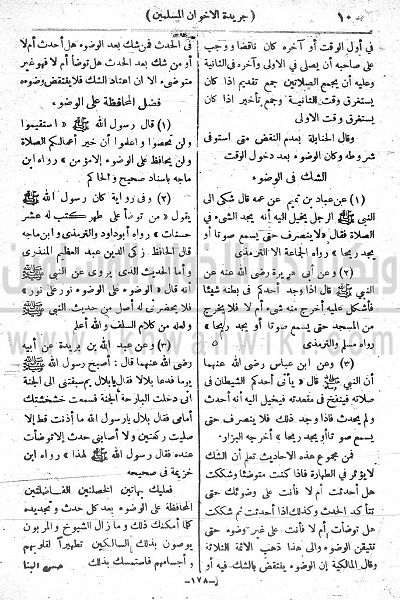 ١٠
( جريدة الاخوان المسلمين )
فى أول الوقت أو آخره كان ناقضا ووجب
على صاحبه أن يصلى فى الاولى وآخر فى الثانية
وعليه أن يجمع الصلاتين جمع تقديم اذا كان
يستغرق وقت الثانية وجمع تأخير اذا كان
يستغرق وقت الاولى
وقال الحنابلة بعدم النقض متى استوفى
شروطه وكان الوضوء بعد دخول الوقت
الشك فى الوضوء
(١) عن عباد بن تميم عن عمه قال شكى الى
النبى ﷺ الرجل يخيل اليه أنه يجد الشىء فى
الصلاة فقال « لا ينصرف حتى يسمع صوتا أو
يجد ريحا » رواه الجماعة الا الترمذى
(٢) وعن أبى هريرة رضى الله عنه عن
النبى ﷺ قال اذا وجد أحدكم فى بطنه شيئا
فأشكل عليه أخرج منه شىء أم لا فلا يخرج
من المسجد حتى يسمع صوتا أو يجد ريحا »
رواه مسلم والترمذى
(٣) وعن ابن عباس رضى الله عنهما
أن النبى ﷺ قال « يأتى أحدكم الشيطان فى
صلاته فينفخ فى مقعدته فيخيل اليه أنه أحدث
ولم يحدث فاذا وجد ذلك فلا ينصرف حتى
يسمع صوتا أو يجد ريحا » أخرجه البزار.
فمن مجموع هذه الأحاديث تعلم أن الشك
لا يؤثر فى الطهارة فاذا كنت متوضئا وشككت
هل أحدثت أم لا فأنت على وضوئك حتى
تتأكد الحدث وكذلك اذا أحدثت ثم شككت
هل توضأت أم لا فأنت على غير وضوء حتى
تتيقن الوضوء والى هذا ذهب الائمة الثلاثة
وقال المالكية إن الوضوء ينتقض بالشك فيه أو
فى الحدث فمن شك بعد الوضوء هل أحدث أم لا
ومن شك بعد الحدث هل توضأ أم لا فهو غير
متوضىء الا ان اعتاد الشك فلا ينتقض وضوءه
فضل المحافظة على الوضوء
(١) قال رسول الله ﷺ « استقيموا
ولن تحصوا واعلموا أن خير أعمالكم الصلاة
ولن يحافظ على الوضوء الا مؤمن » رواه ابن
ماجه باسناد صحيح والحاكم
(٢) وفى رواية كان رسول الله ﷺ
يقول « من توضأ على طهر كتب له عشر
حسنات » رواه أبو داود والترمذى وابن ماجه
قال الحافظ زكى الدين عبد العظيم المنذرى
وأما الحديث الذى يروى عن النبى ﷺ
أنه قال « الوضوء على الوضوء نور على نور »
فلا يحضرنى له أصل من حديث النبى ﷺ
ولعله من كلام السلف والله أعلم
(٣) وعن عبد الله بن بريدة عن أبيه
رضى الله عنهما قال: أصبح رسول الله ﷺ
يوما فدعا بلالا فقال يا بلال بم سبقتنى الى الجنة
انى دخلت البارحة الجنة فسمعت خشخشتك
أمامى فقال بلال يا رسول الله ما أذنت قط إلا
صليت ركعتين ولا أصابنى حدث إلا توضأت
عنده فقال رسول الله ﷺ لهذا » رواه ابن
خزيمة فى صحيحه
فعليك بهاتين الخصلتين الفاضلتين
المحافظة على الوضوء بعد كل حدث وتجديده
كلما أمكنك ذلك وما زال الشيوخ والمربون
يوصون بذلك السالكين تطهيراً لقلوبهم
وأجسامهم فاستمسك بذلك
حسن البنا
— ١٧٨ —